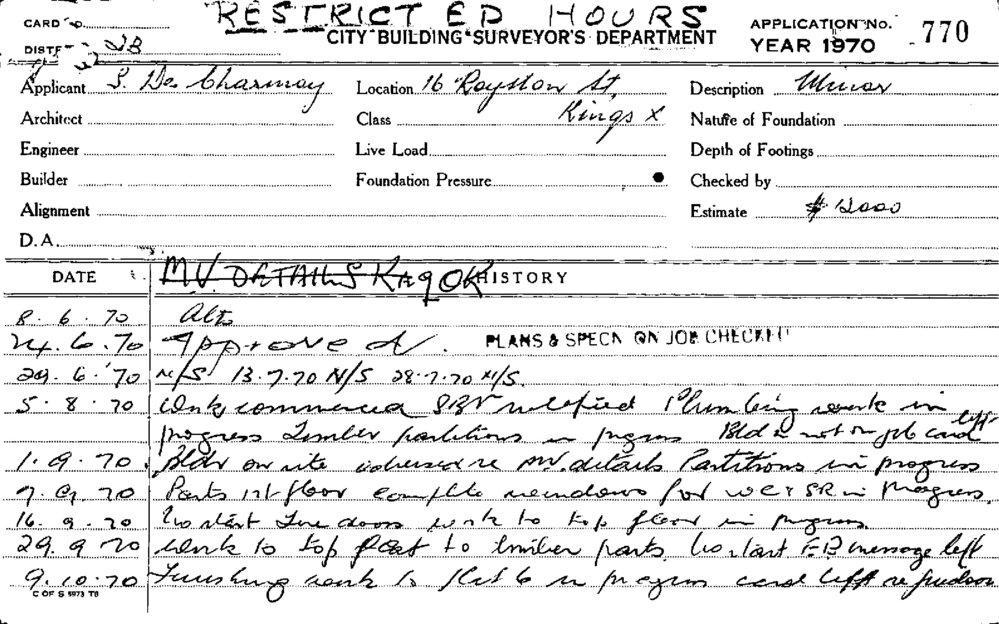 RESTRICTED HOURS
CARD No.
CITY BUILDING SURVEYOR'S DEPARTMENT
APPLICATION No. 770
DISTF 2B
YEAR 1970
Applicant S. De Charmoy Location 16 Royston St, Description Minor
Architect Class Kings X Nature of Foundation
Engineer Live Load Depth of Footings
Builder Foundation Pressure Checked by
Alignment Estimate $ 2000
D.A.
MV. DETAILS REQ OK
DATE HISTORY
8.6.70 Alts
24.6.70 Approved. PLANS & SPECN ON JOB CHECKED
29.6.70 N/S 13.7.70 N/S 28.7.70 N/S.
5.8.70 Work commenced notified Plumbing work in
progress Timber partitions in progress Bldr not on job card left
1.9.70 Bldr on site advised re MV. details Partitions in progress
7.9.70 Parts 1st floor complete windows for WC & SR in progress.
16.9.70 No start fire doors work to top floor in progress.
29.9.70 Work to top flat to timber parts No start message left
9.10.70 Finishing work to flat 6 in progress card left re
C OF S 5973 T8